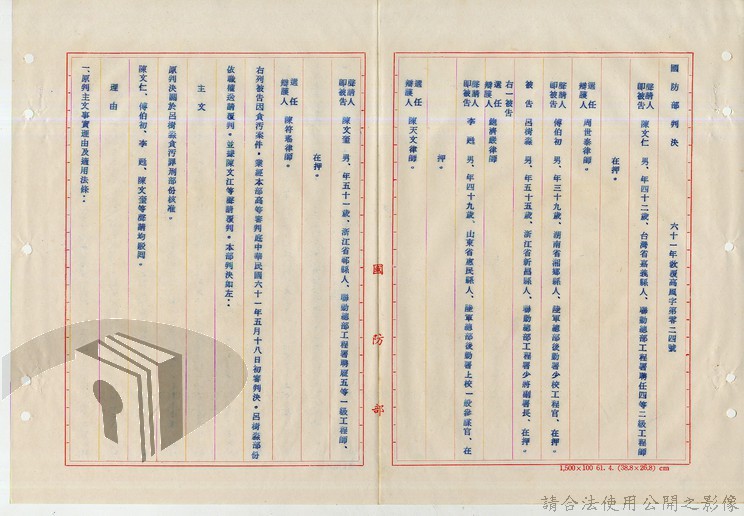 國防部判決
六十一年秋覆高風字第零二四號
聲請人
即被告 陳文仁 男、年四十二歲、台灣省嘉義縣人、聯勤總部工程署聘任四等二級工程師
在押。
選任
辯護人 周世泰律師。
聲請人
即被告 傅伯初 男、年三十九歲、湖南省湘鄉縣人、陸軍總部後勤署少校工程官、在押。
被告 呂樹淼 男、年五十五歲、浙江省新昌縣人、聯勤總部工程署少將副署長、在押。
右一被告
選任
辯護人 律師。
聲請人
即被告 李甦 男、年四十九歲、山東省惠民縣人、陸軍總部後勤署上校一般參謀官、在
押。
選任
辯護人 陳天文律師。
國防部
聲請人
即被告 陳文 男、年五十一歲、浙江省 縣人、聯勤總部工程署聘雇五等一級工程師、
在押。
選任
辯護人 律師。
右列被告因貪污案件。業經本部高等審判庭中華民國六十一年五月十八日初審判決。呂樹淼部份
依職權送請覆判。並據陳文仁等聲請覆判。本部判決如左:
主文
原判決關於呂樹淼貪污罪刑部份核准。
陳文仁、傅伯初、李甦、陳文 等聲請均駁回。
理由
一、原判主文事實理由及適用法條:
1,500×100 61. 4. (38.8×26.8) cm
請合法使用公開之影像